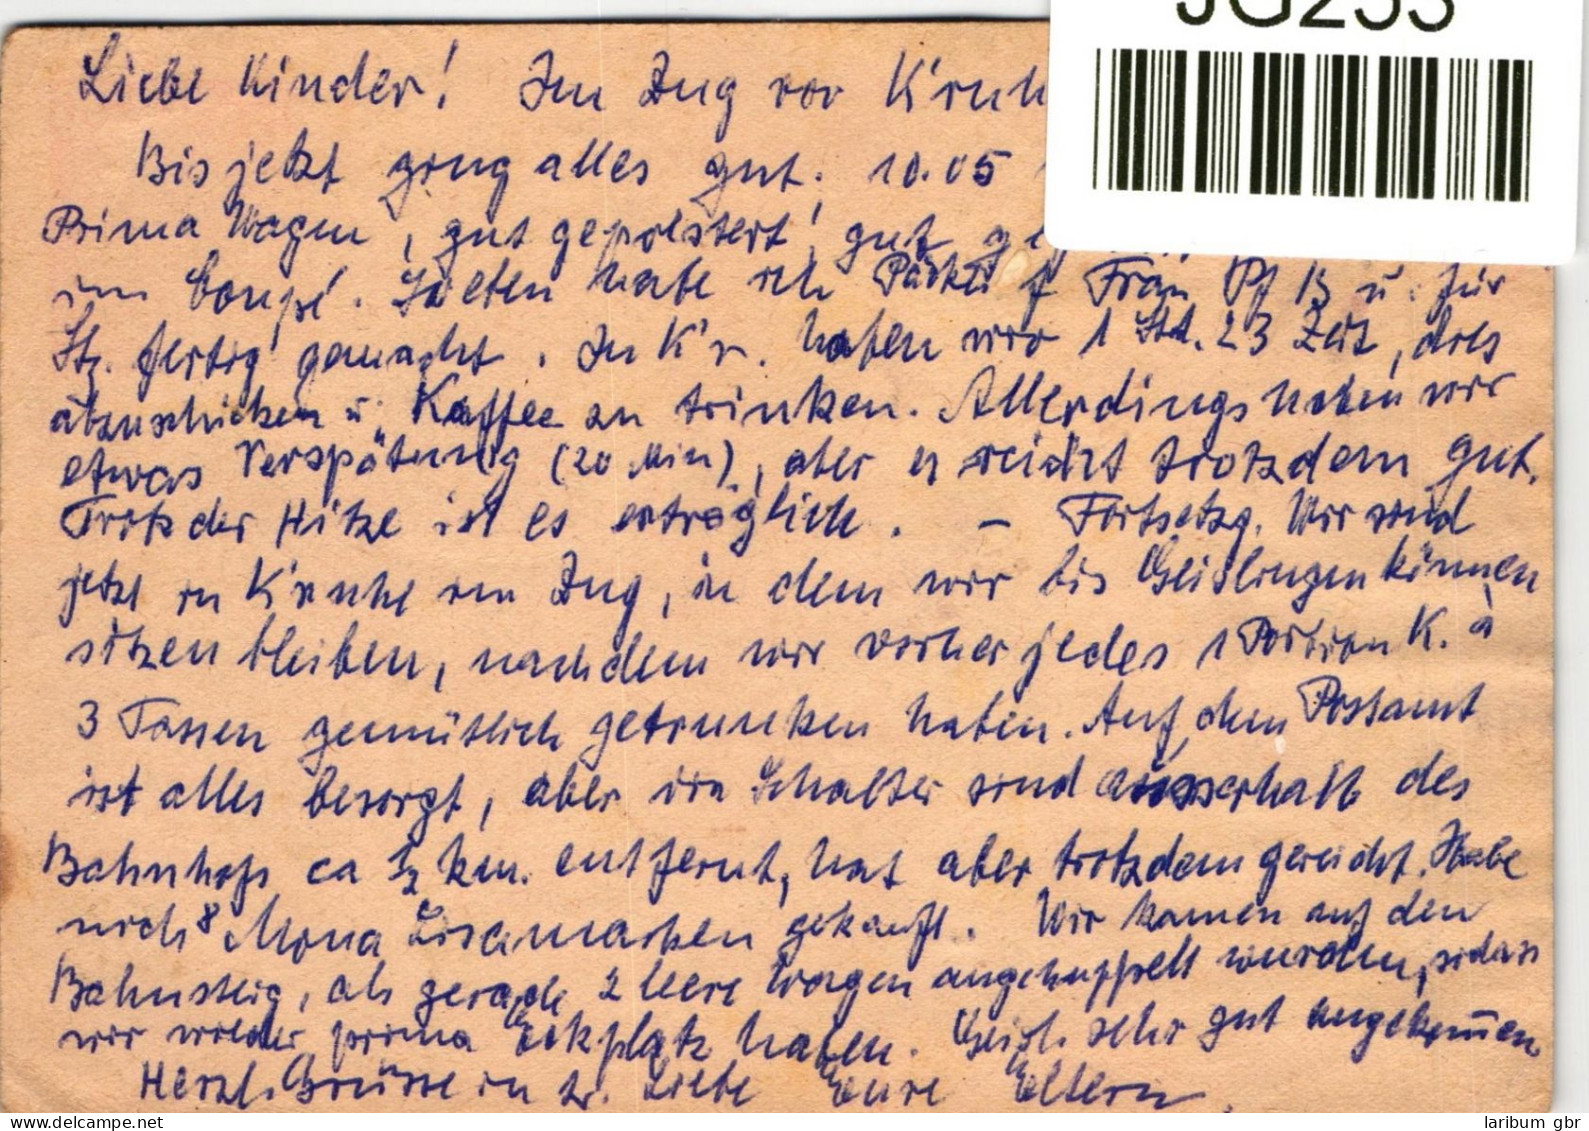 JG253
Liebe Kinder! Im Zug vor K'ruh
Bis jetzt ging alles gut. 10.05
Prima Wagen, gut gepolstert, gut
im Coupé. Soeben habe ich Päckli f Frau Pf B u. für
Stz. fertig gemacht. In K'r. haben wir 1 Std. 23 Zeit, dies
abzuschicken u. Kaffee zu trinken. Allerdings haben wir
etwas Verspätung (20 Min), aber es reicht trotzdem gut.
Trotz der Hitze ist es erträglich. – Fortsetzg. Wir sind
jetzt in K'ruhe im Zug, in dem wir bis Geislingen können
sitzen bleiben, nachdem wir vorher jedes 1 Portion K. à
3 Tassen gemütlich getrunken haben. Auf dem Postamt
ist alles besorgt, aber die Schalter sind ausserhalb des
Bahnhofs ca ½ km. entfernt, hat aber trotzdem gereicht. Habe
noch 8 Mona Lisamarken gekauft. Wir kamen auf den
Bahnsteig, als gerade 2 leere Wagen angekuppelt wurden, sodass
wir wieder prima Eckplatz haben. Geisl. sehr gut angekommen
Herzl. Grüsse in Liebe Eure Eltern.
laribum gbr